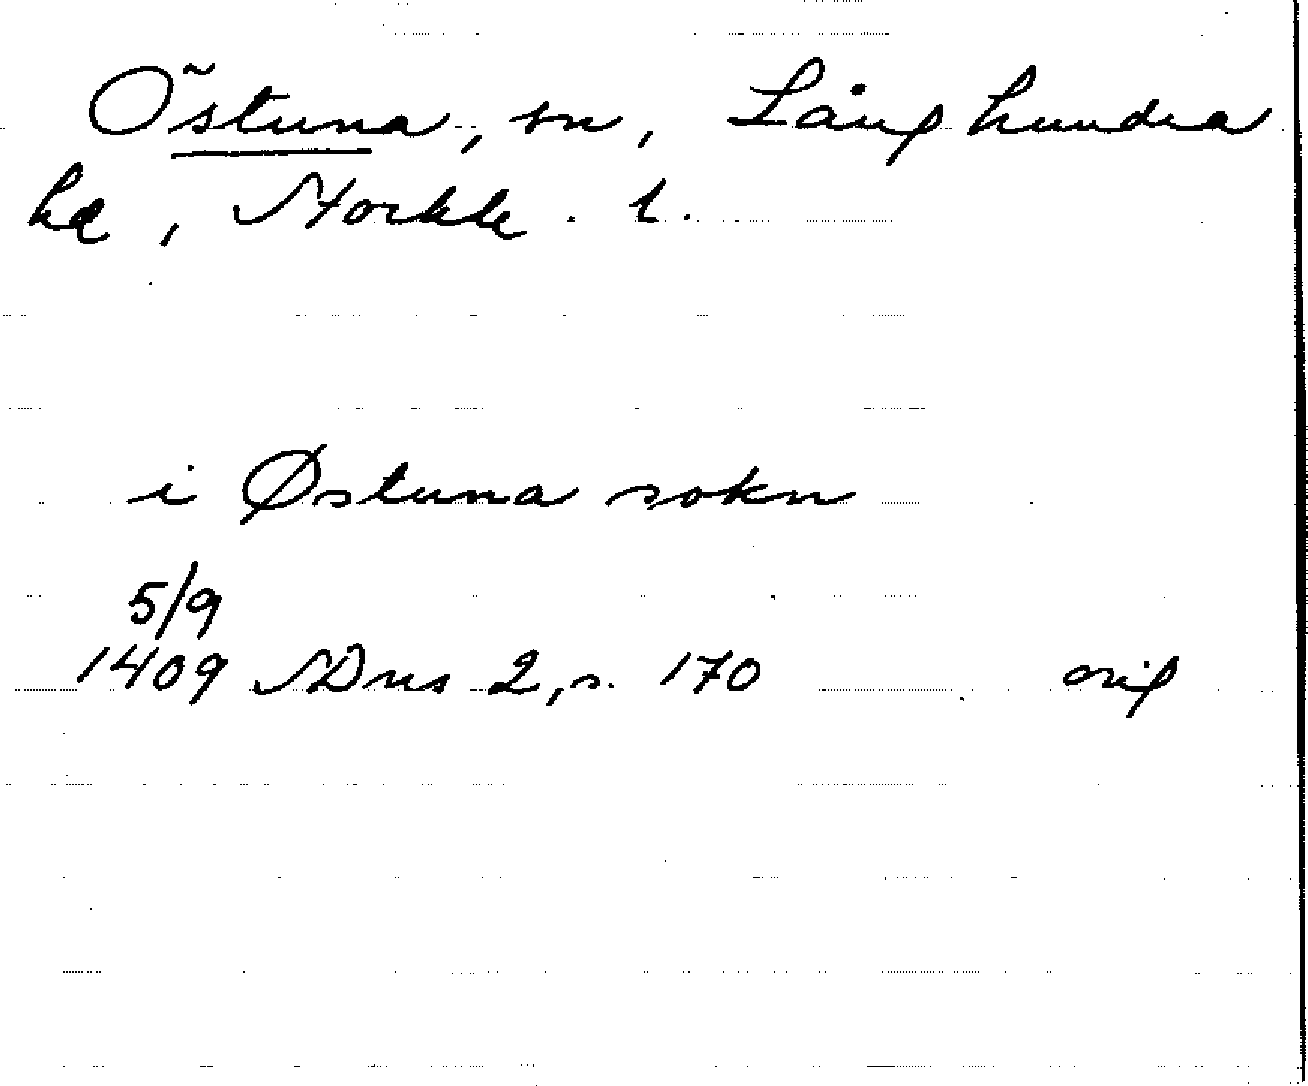 Östuna, sn, Långhundra
hd, Stockh. l.
i Østuna sokn
5/9
1409 SDns 2, s. 170 orig